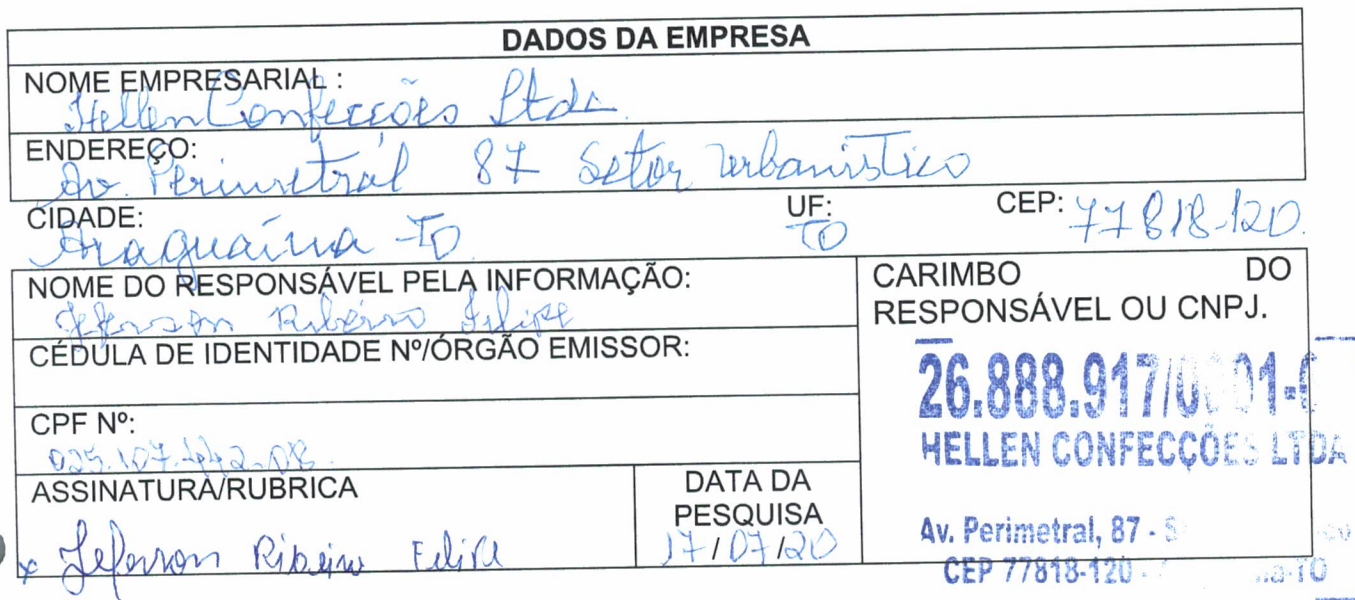 DADOS DA EMPRESA
NOME EMPRESARIAL :
Hellen Confecções Ltda.
ENDEREÇO:
Av. Perimetral 87 Setor urbanistico
CIDADE:
Araguaína-TO
UF:
TO
CEP: 77818-120.
NOME DO RESPONSÁVEL PELA INFORMAÇÃO:
Jeferson Ribeiro Felipe
CÉDULA DE IDENTIDADE Nº/ÓRGÃO EMISSOR:
CPF Nº:
ASSINATURA/RUBRICA
x Jeferson Ribeiro Felipe
DATA DA
PESQUISA
17/07/20
CARIMBO DO
RESPONSÁVEL OU CNPJ.
26.888.917/0001-
HELLEN CONFECÇÕES LTDA
Av. Perimetral, 87 - S
CEP 77818-120 - TO